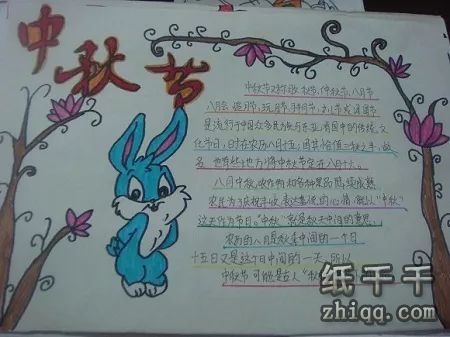 中秋节
中秋节又称 、仲秋节、八月节
八月会、追月节、玩月节、拜月节、女儿节或团圆节
是流行于中国众多民族与东亚诸国中的传统文
化节日,时在农历八月十五,因其恰值三秋之半,故
名,也有些地方将中秋节定在八月十六。
八月中秋,农作物和各种果品陆续成熟
农民为了庆祝丰收,表达喜悦的心情,就以“中秋”
这天作为节日。“中秋”就是秋天中间的意思,
农历的八月是秋季中间的一个月
十五日又是这个月中间的一天,所以
中秋节可能是古人“秋
纸千千
zhiqq.com